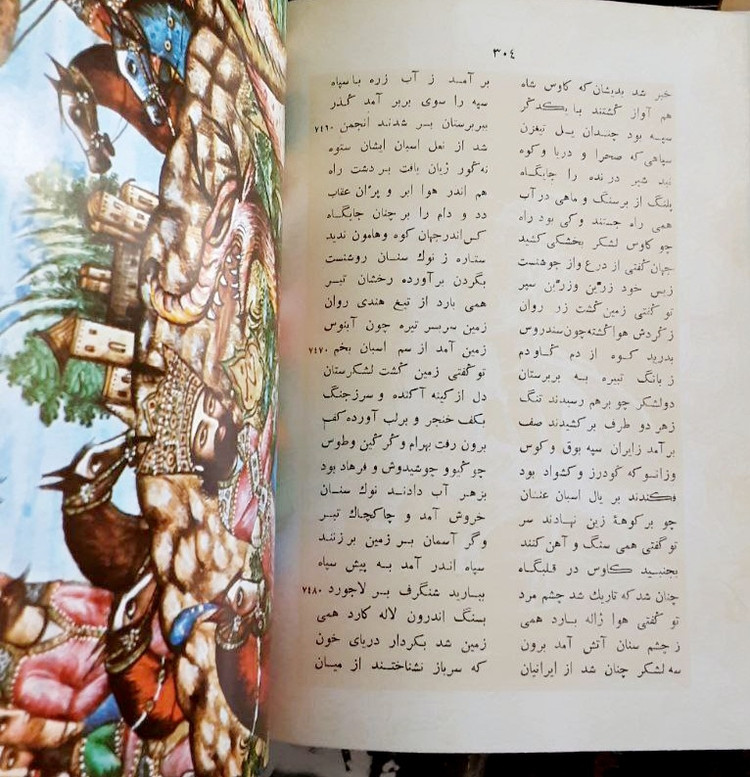 ۳۰۴
خبر شد بدیشان که کاوس شاه بر آمد ز آب زره با سپاه
هم آواز گشتند با یکدگر سپه را سوی بربر آمد گذر
سپه بود چندان یل تیغزن ببربرستان بر شدند انجمن ۷۴۶۰
سپاهی که صحرا و دریا و کوه شد از نعل اسبان ایشان ستوه
نبد شیر درنده را جایگاه نه گور ژیان یافت بر دشت راه
پلنگ از بر سنگ و ماهی در آب هم اندر هوا ابر و پران عقاب
همی راه جستند و کی بود راه دد و دام را بر چنان جایگاه
چو کاوس لشکر بخشکی کشید کس اندر جهان کوه و هامون ندید
جهان گفتی از درع و از جوشنست ستاره ز نوک سنان روشنست
زبس خود زرین و زرین سپر بگردن برآورده رخشان تبر
تو گفتی زمین گشت زر روان همی بارد از تیغ هندی روان
ز گردش هوا گشته چون سندروس زمین سربسر تیره چون آبنوس
بدرید کوه از دم گاودم زمین آمد از سم اسبان بخم ۷۴۷۰
ز بانگ تبیره به بربرستان تو گفتی زمین گشت لشکرستان
دو لشکر چو برهم رسیدند تنگ دل از کینه آکنده و سر ز جنگ
ز هر دو طرف برکشیدند صف بکف خنجر و برلب آورده کف
برآمد ز ایران سپه بوق و کوس برون رفت بهرام و گرگین و طوس
وزانسو که گودرز و کشواد بود چو گیو و چو شیدوش و فرهاد بود
فکندند بر یال اسبان عنان بزهر آب دادند نوک سنان
چو بر کوههٔ زین نهادند سر خروش آمد و چاکچاک تبر
تو گفتی همی سنگ و آهن کنند وگر آسمان بر زمین برزنند
بجنبید کاوس در قلبگاه سپاه اندر آمد به پیش سپاه
چنان شد که تاریک شد چشم مرد ببارید شنگرف بر لاجورد ۷۴۸۰
تو گفتی هوا ژاله بارد همی بسنگ اندرون لاله کارد همی
ز چشم سنان آتش آمد برون زمین شد بکردار دریای خون
سه لشکر چنان شد از ایرانیان که سر باز نشناختند از میان